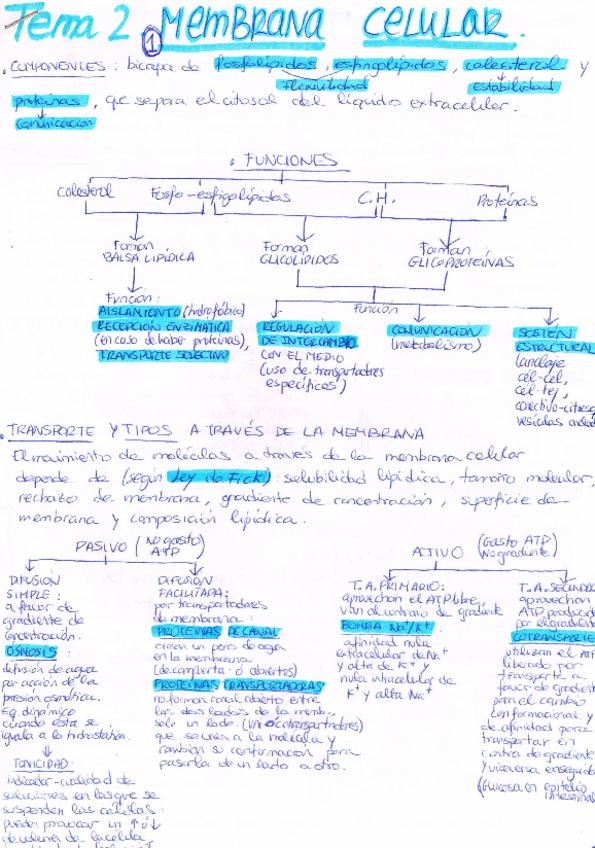 Tema 2 ① MEMBRANA CELULAR.
. COMPONENTES : bicapa de fosfolípidos, esfingolípidos, colesterol y
flexibilidad estabilidad
proteínas, qe separa el citosol del líquido extracelular.
comunicación
. FUNCIONES
Colesterol Fosfo-esfingolípidos C.H. Proteínas
Forman Forman Forman
BALSA LIPÍDICA GLICOLÍPIDOS GLICOPROTEÍNAS
Función: Función
AISLAMIENTO (hidrofóbico)
RECEPCIÓN ENZIMÁTICA
(en caso de haber proteínas),
TRANSPORTE SELECTIVO
REGULACIÓN
DE INTERCAMBIO
CON EL MEDIO
(uso de transportadores
específicos)
COMUNICACIÓN
(metabolismo)
SOSTEN
ESTRUCTURAL
(anclaje
cél-cél,
cél-tej,
vesículas
. TRANSPORTE Y TIPOS A TRAVÉS DE LA MEMBRANA
El movimiento de moléculas a través de la membrana celular
depende de (según Ley de Fick): solubilidad lipídica, tamaño molecular,
rechazo de membrana, gradiente de concentración, superficie de
membrana y composición lipídica.
PASIVO (No gasto ATP)
DIFUSIÓN
SIMPLE:
a favor de
gradiente de
concentración.
OSMOSIS:
difusión de agua
por acción de la
presión osmótica.
Eq dinámico
cuando esta se
iguala a la hidrostática.
TONICIDAD:
indicador-cualidad de
soluciones en las que se
suspenden las células.
pueden provocar un ↑ ó ↓
de volumen de la célula,
DIFUSIÓN
FACILITADA:
por transportadores
de membrana:
PROTEINAS DE CANAL
crean un poro de agua
en la membrana
(de compuerta o abiertos)
PROTEINAS TRANSPORTADORAS
no forman canal abierto entre
los dos lados de la memb.,
solo un lado. (Uni o cotransportadores)
que se unen a la molécula y
cambian su conformación para
pasarla de un lado a otro.
ACTIVO (Gasto ATP) (No gradiente)
T.A. PRIMARIO:
aprovechan el ATP libre,
van al contrario de gradiente
BOMBA Na⁺/K⁺:
afinidad nula
extracelular de Na⁺
y alta de K⁺ y
nula intracelular de
K⁺ y alta Na⁺
T.A. SECUNDARIO
aprovechan
ATP producido
por el gradiente
COTRANSPORTE
utilizan el ATP
liberado por
transporte a
favor de gradiente
para el cambio
conformacional y
de afinidad para
transportar en
contra de gradiente
y viceversa enseguida
(Glucosa en epitelio
intestinal